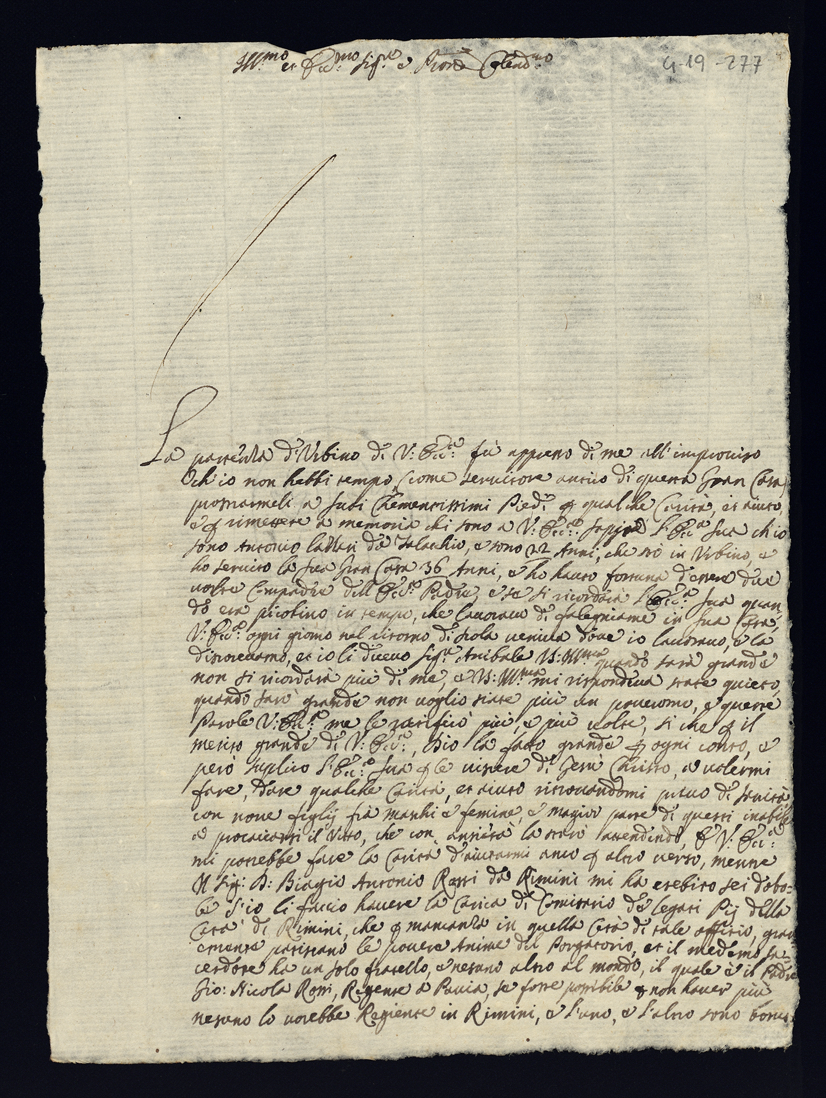 Ill.mo et Ecc.mo Sig.re e Pron Colend.mo
G-19-277
La partenza d'Urbino di V: Ecc.a fù appreso di me all'improuiso
ch'io non hebbi tempo, come seruitore antico di questa Gran Casa
prostrarmeli a suoi Clementissimi Piedi p qualche Carità, et aiuto,
e p rimettere a memoria chi sono a V: Ecc.a sappia l'Ecc.a Sua ch'io
sono Antonio da Talachio, e sono 22 Anni, che stò in Vrbino, e
ho seruito la sua Gran Casa 36 Anni, e ho hauto fortuna d'essere due
uolte Compadre dell'Ecc.o Padre, e se si ricordarà l'Ecc.a Sua quan
do era picolino in tempo, che lauorauo di falegniame in sua Casa,
V: Ecc.a ogni giorno nel ritorno di scola veniua doue io lauorauo, e la
discoreuamo, et io li diceuo Sig.r Anibale VS: Ill.ma quando sarà grande
non si ricordarà più di me, e VS: Ill.ma mi rispondeua state quieto,
quando sarò grande non voglio siate più un pouer'omo, e queste
Parole V: Ecc.a me le ratificò più, e più uolte, si che p il
merito grande di V: Ecc.a, Dio la fatto grande p ogni conto, e
però suplico l'Ecc.a Sua p le viscere di Gesu Christo, a uolermi
fare, dare qualche Carità, et aiuto ritrouandomi priuo di sanità
con noue figlij frà maschi e femine, e magior parte di questi inabili
a procacciarsi il Vitto, che con ansietà la starò attendendo, E V: Ecc.a
mi potrebbe fare la Carità d'aiutarmi anco p altro uerso, mentre
Il Sig.r D: Biagio Antonio Rossi da Rimini mi ha esebito sei dobo=
le s'io li faccio hauere la Carica di Comissario de Legati Pij della
Città di Rimini, che p mancanza in quella Città di tale offitio, graue
emente patiscano le pouere Anime del Porgatorio, et il medemo Sa=
cerdote ha un solo fratello, e nesuno altro al mondo, il quale è il Padre
Gio: Nicola Rossi, Regente a Pauia, se fosse possibile p non hauer più
nesuno lo uorebbe Regiente in Rimini, e l'uno, e l'altro sono bonis